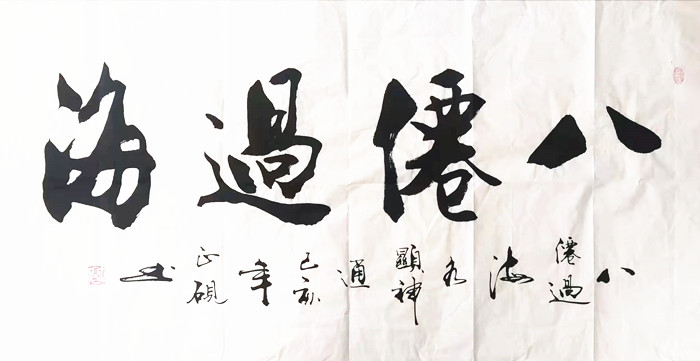 八僊過海
八僊過海各顯神通己亥年正硯书